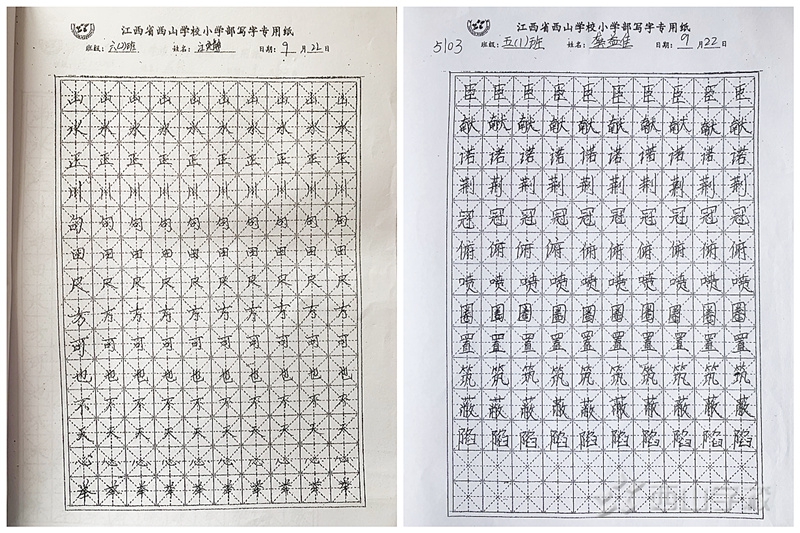 江西省西山学校小学部写字专用纸
班级: 六(2)班 姓名: 日期: 9 月 22 日
山 山 山 山 山 山 山 山 山 山
水 水 水 水 水 水 水 水 水 水
正 正 正 正 正 正 正 正 正 正
川 川 川 川 川 川 川 川 川 川
句 句 句 句 句 句 句 句 句 句
田 田 田 田 田 田 田 田 田 田
尺 尺 尺 尺 尺 尺 尺 尺 尺 尺
方 方 方 方 方 方 方 方 方 方
可 可 可 可 可 可 可 可 可 可
也 也 也 也 也 也 也 也 也 也
不 不 不 不 不 不 不 不 不 不
天 天 天 天 天 天 天 天 天 天
心 心 心 心 心 心 心 心 心 心
举 举 举 举 举 举 举 举 举 举
江西省西山学校小学部写字专用纸
5103 班级: 五(1)班 姓名: 日期: 9 月 22 日
臣 臣 臣 臣 臣 臣 臣 臣 臣 臣
献 献 献 献 献 献 献 献 献 献
诺 诺 诺 诺 诺 诺 诺 诺 诺 诺
荆 荆 荆 荆 荆 荆 荆 荆 荆 荆
冠 冠 冠 冠 冠 冠 冠 冠 冠 冠
俯 俯 俯 俯 俯 俯 俯 俯 俯 俯
喷 喷 喷 喷 喷 喷 喷 喷 喷 喷
圈 圈 圈 圈 圈 圈 圈 圈 圈 圈
置 置 置 置 置 置 置 置 置 置
筑 筑 筑 筑 筑 筑 筑 筑 筑 筑
蔽 蔽 蔽 蔽 蔽 蔽 蔽 蔽 蔽 蔽
陷 陷 陷 陷 陷 陷 陷 陷 陷 陷
西山学校